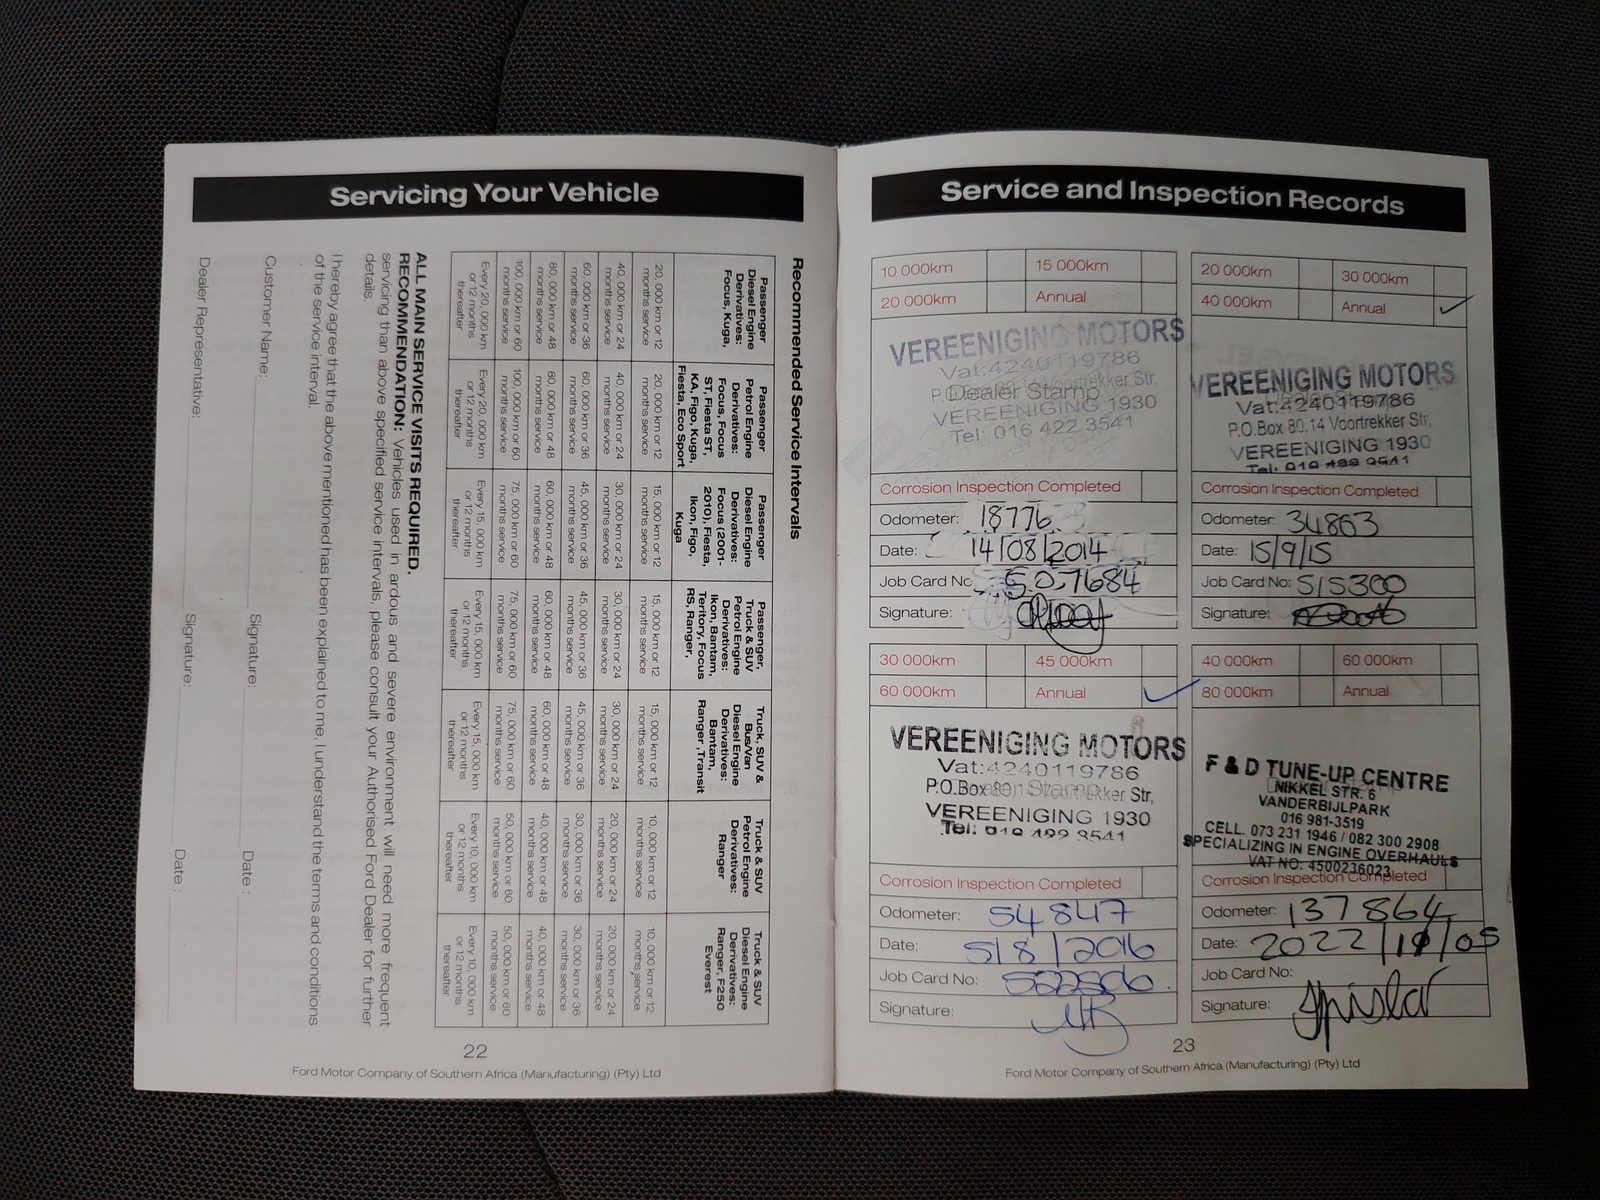 Servicing Your Vehicle
Recommended Service Intervals
Passenger Diesel Engine Derivatives: Focus, Kuga,
20, 000 km or 12 months service
40, 000 km or 24 months service
60, 000 km or 36 months service
80, 000 km or 48 months service
100, 000 km or 60 months service
Every 20, 000 km or 12 months thereafter
Passenger Petrol Engine Derivatives: Focus, Focus ST, Fiesta ST, KA, Figo, Kuga, Fiesta, Eco Sport
20, 000 km or 12 months service
40, 000 km or 24 months service
60, 000 km or 36 months service
80, 000 km or 48 months service
100, 000 km or 60 months service
Every 20, 000 km or 12 months thereafter
Passenger Diesel Engine Derivatives: Focus (2001-2010), Fiesta, Ikon, Figo, Kuga
15, 000 km or 12 months service
30, 000 km or 24 months service
45, 000 km or 36 months service
60, 000 km or 48 months service
75, 000 km or 60 months service
Every 15, 000 km or 12 months thereafter
Passenger, Truck & SUV Petrol Engine Derivatives: Ikon, Bantam, Teritory, Focus RS, Ranger,
15, 000 km or 12 months service
30, 000 km or 24 months service
45, 000 km or 36 months service
60, 000 km or 48 months service
75, 000 km or 60 months service
Every 15, 000 km or 12 months thereafter
Truck, SUV & Bus/Van Diesel Engine Derivatives: Bantam, Ranger ,Transit
15, 000 km or 12 months service
30, 000 km or 24 months service
45, 000 km or 36 months service
60, 000 km or 48 months service
75, 000 km or 60 months service
Every 15, 000 km or 12 months thereafter
Truck & SUV Petrol Engine Derivatives: Ranger
10, 000 km or 12 months service
20, 000 km or 24 months service
30, 000 km or 36 months service
40, 000 km or 48 months service
50, 000 km or 60 months service
Every 10, 000 km or 12 months thereafter
Truck & SUV Diesel Engine Derivatives: Ranger, F250 Everest
10, 000 km or 12 months service
20, 000 km or 24 months service
30, 000 km or 36 months service
40, 000 km or 48 months service
50, 000 km or 60 months service
Every 10, 000 km or 12 months thereafter
ALL MAIN SERVICE VISITS REQUIRED.
RECOMMENDATION: Vehicles used in ardous and severe environment will need more frequent
servicing than above specified service intervals, please consult your Authorised Ford Dealer for further
details.
I hereby agree that the above mentioned has been explained to me, I understand the terms and conditions
of the service interval.
Customer Name: Signature: Date :
Dealer Representative: Signature: Date :
22
Ford Motor Company of Southern Africa (Manufacturing) (Pty) Ltd
Service and Inspection Records
10 000km 15 000km
20 000km Annual
VEREENIGING MOTORS
Vat:4240119786
Dealer Stamp
VEREENIGING 1930
Tel: 016 422 3541
Corrosion Inspection Completed
Odometer: 18776
Date: 14/08/2014
Job Card No: 507684
Signature:
20 000km 30 000km
40 000km Annual ✓
VEREENIGING MOTORS
Vat:4240119786
P.O.Box 80.14 Voortrekker Str,
VEREENIGING 1930
Corrosion Inspection Completed
Odometer: 34863
Date: 15/9/15
Job Card No: 515300
Signature:
30 000km 45 000km
60 000km Annual ✓
VEREENIGING MOTORS
Vat:4240119786
VEREENIGING 1930
Corrosion Inspection Completed
Odometer: 54847
Date: 5/8/2016
Job Card No: 522506
Signature:
40 000km 60 000km
80 000km Annual
F & D TUNE-UP CENTRE
NIKKEL STR. 6
VANDERBIJLPARK
016 981-3519
CELL. 073 231 1946 / 082 300 2908
SPECIALIZING IN ENGINE OVERHAULS
VAT NO: 4500236023
Corrosion Inspection Completed
Odometer: 137864
Date: 2022/10/05
Job Card No:
Signature:
23
Ford Motor Company of Southern Africa (Manufacturing) (Pty) Ltd